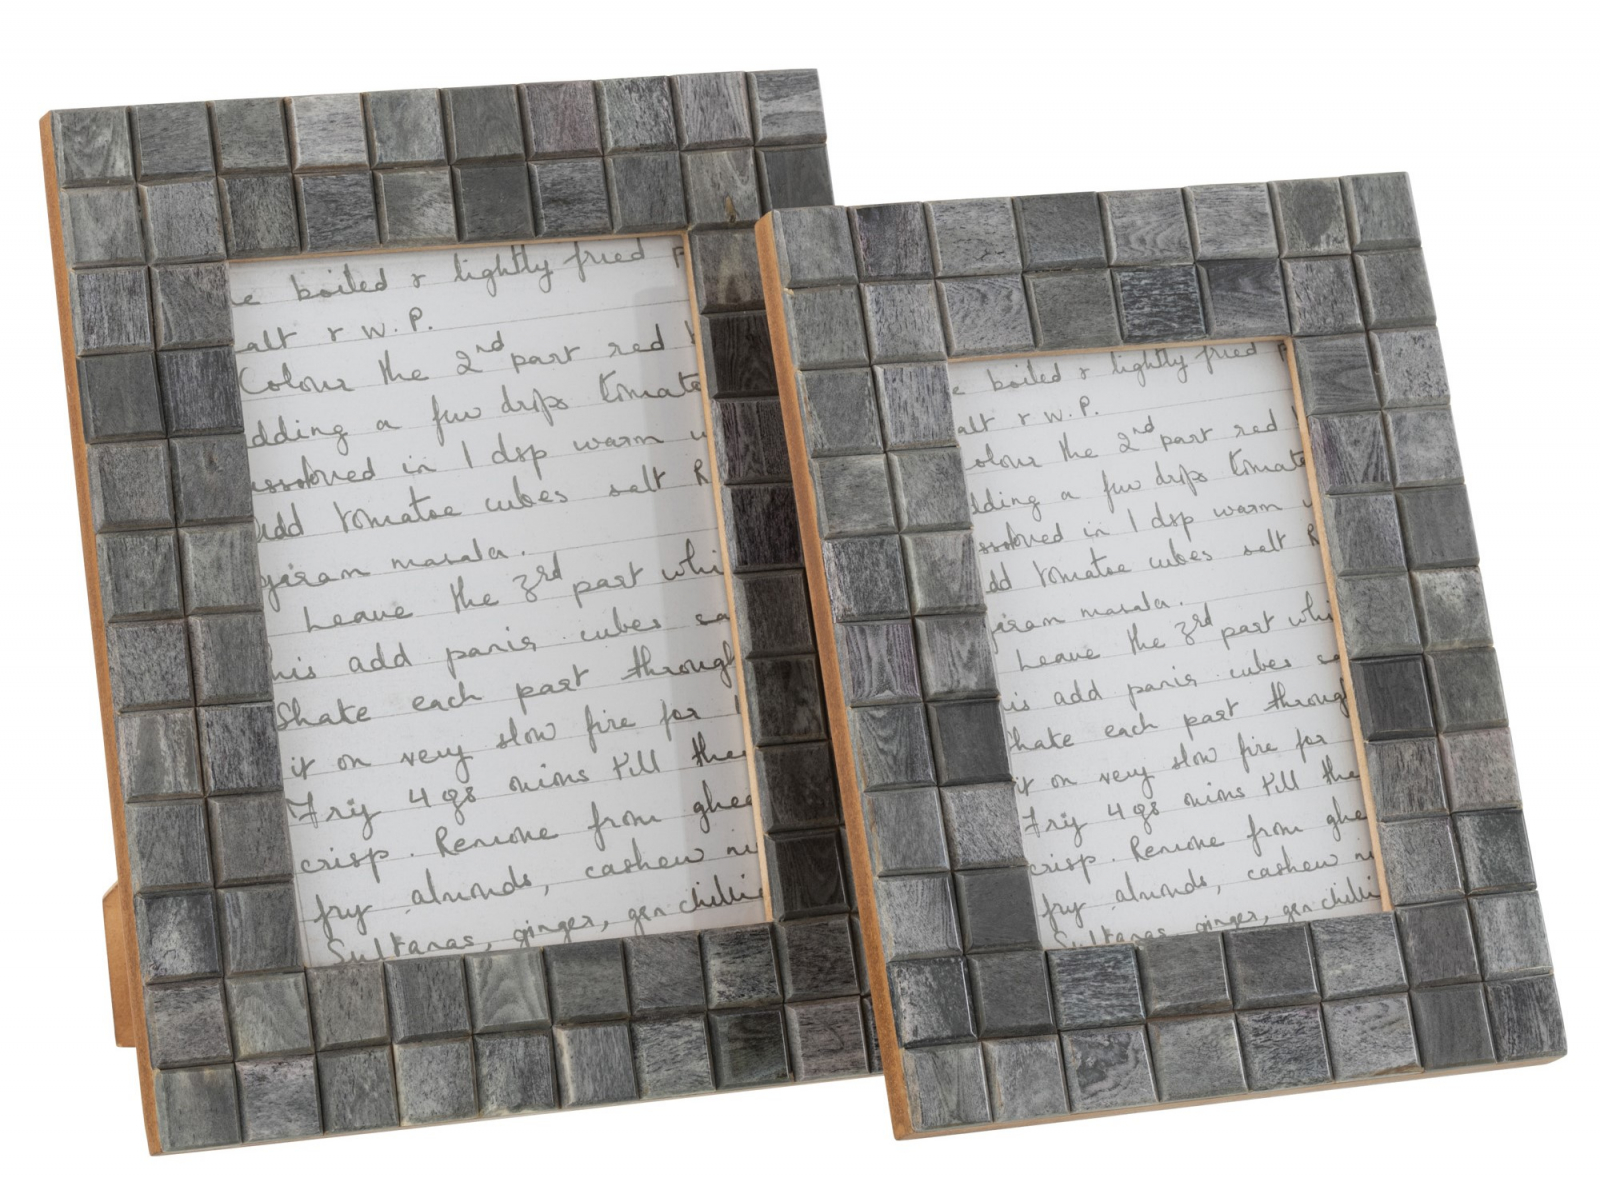 e boiled & lightly fried
alt & W.P.
Colour the 2nd part red
dding a few drips tomato
issolved in 1 dsp warm
add tomatoe cubes salt
garam masala.
Leave the 3rd part whi
his add panir cubes sa
Shake each part through
it on very slow fire for
Fry 4 ozs onions till the
crisp. Remove from ghee
fry almonds, cashew nu
Sultanas, ginger, gen chillie
e boiled & lightly fried
alt & W.P.
olour the 2nd part red
dding a few drips tomato
issolved in 1 dsp warm
dd tomatoe cubes salt
garam masala.
Leave the 3rd part whi
is add panir cubes sa
Shake each part throug
it on very slow fire for
Fry 4 ozs onions till the
crisp. Remove from ghe
fry almonds, cashew n
Sultanas, ginger, gen chilli